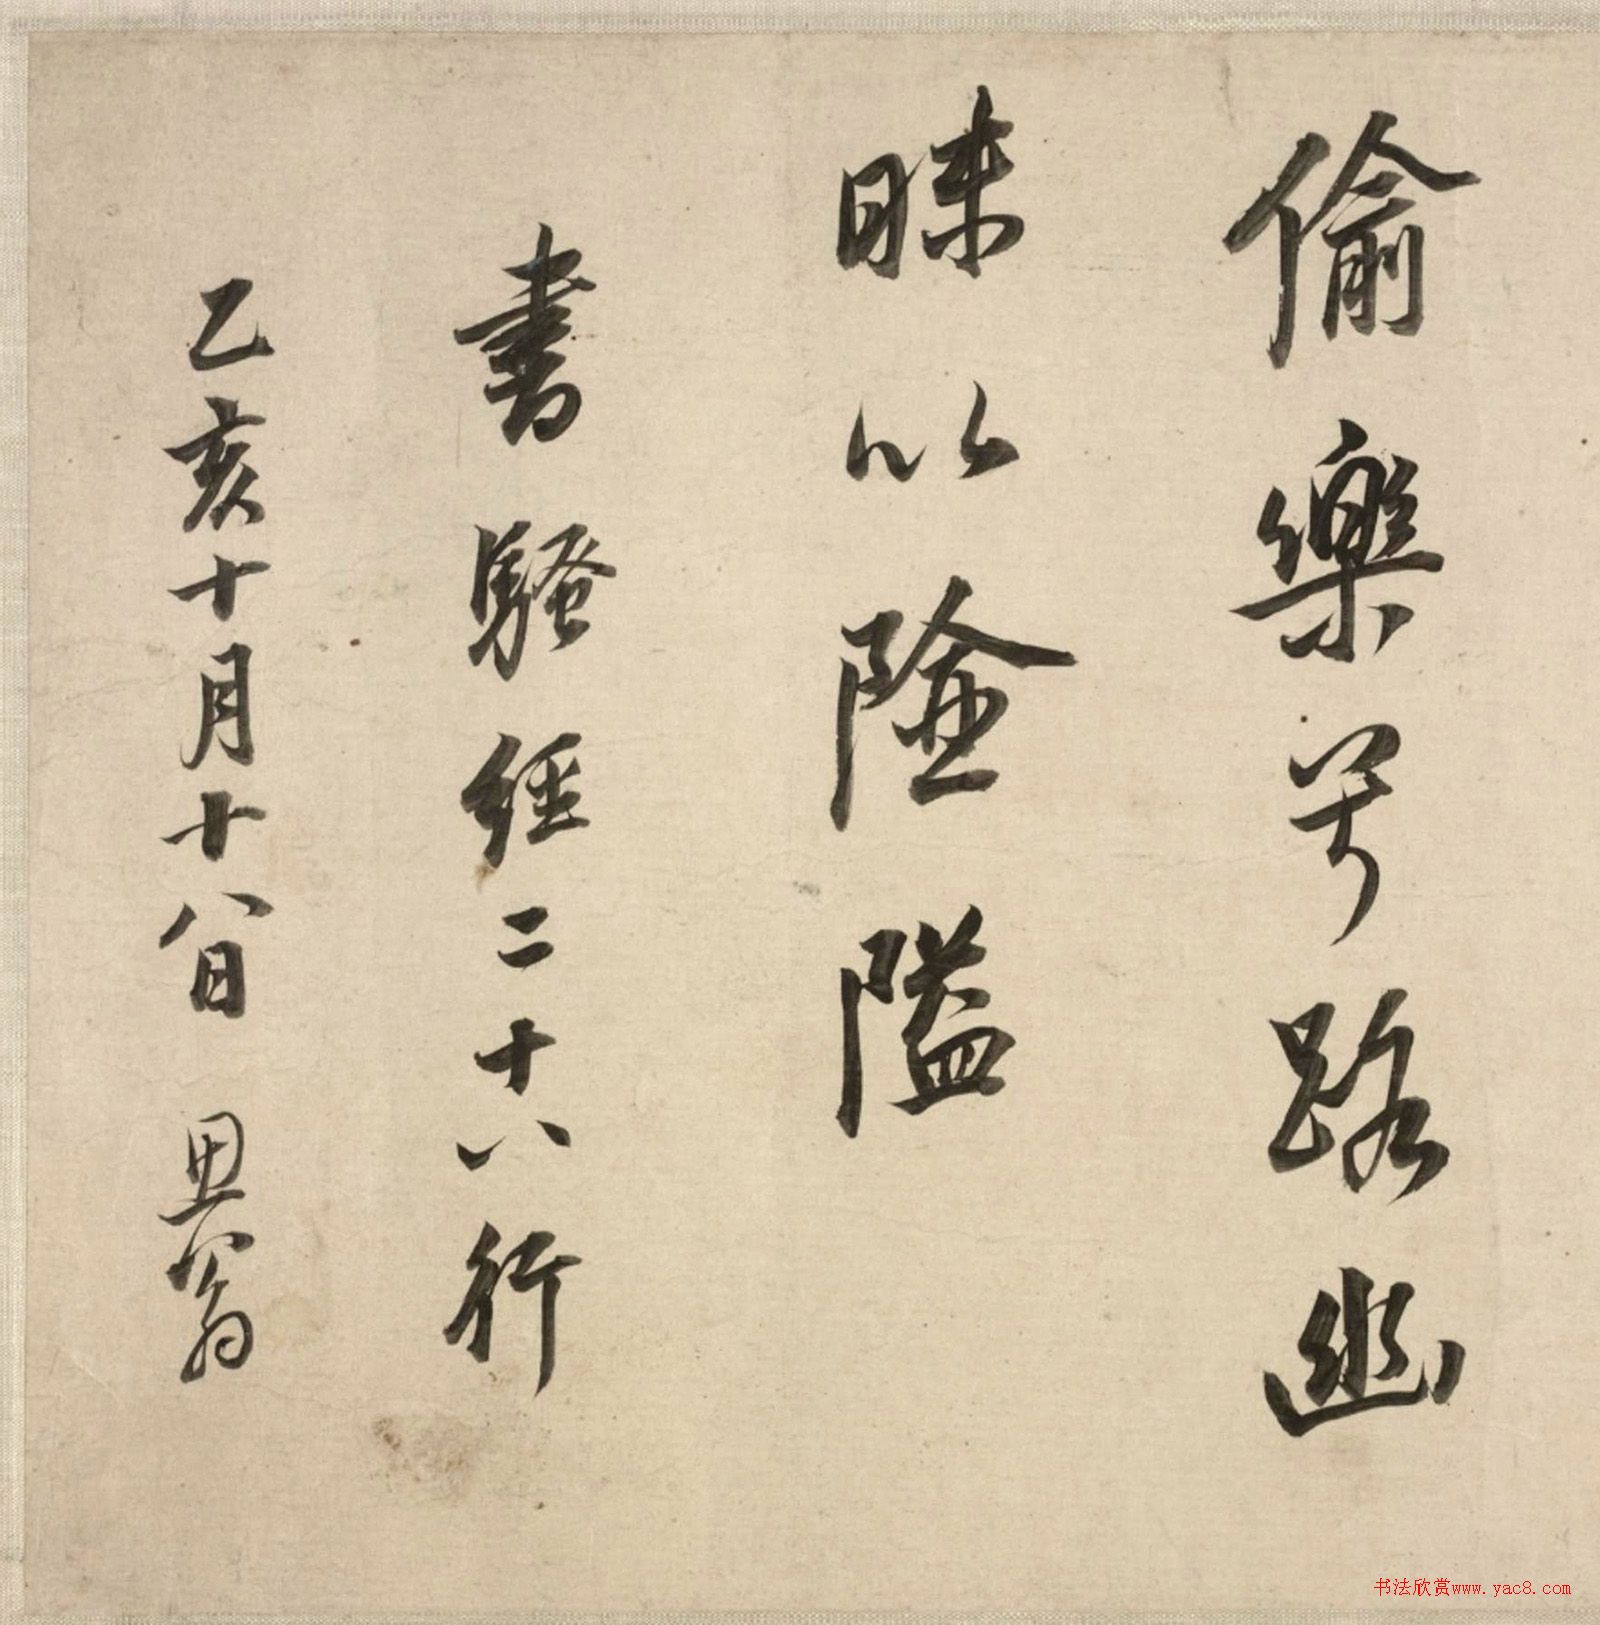 偷樂兮路幽
昧以險隘
書騷經二十八行
乙亥十月十八日 思翁
书法欣赏www.yac8.com